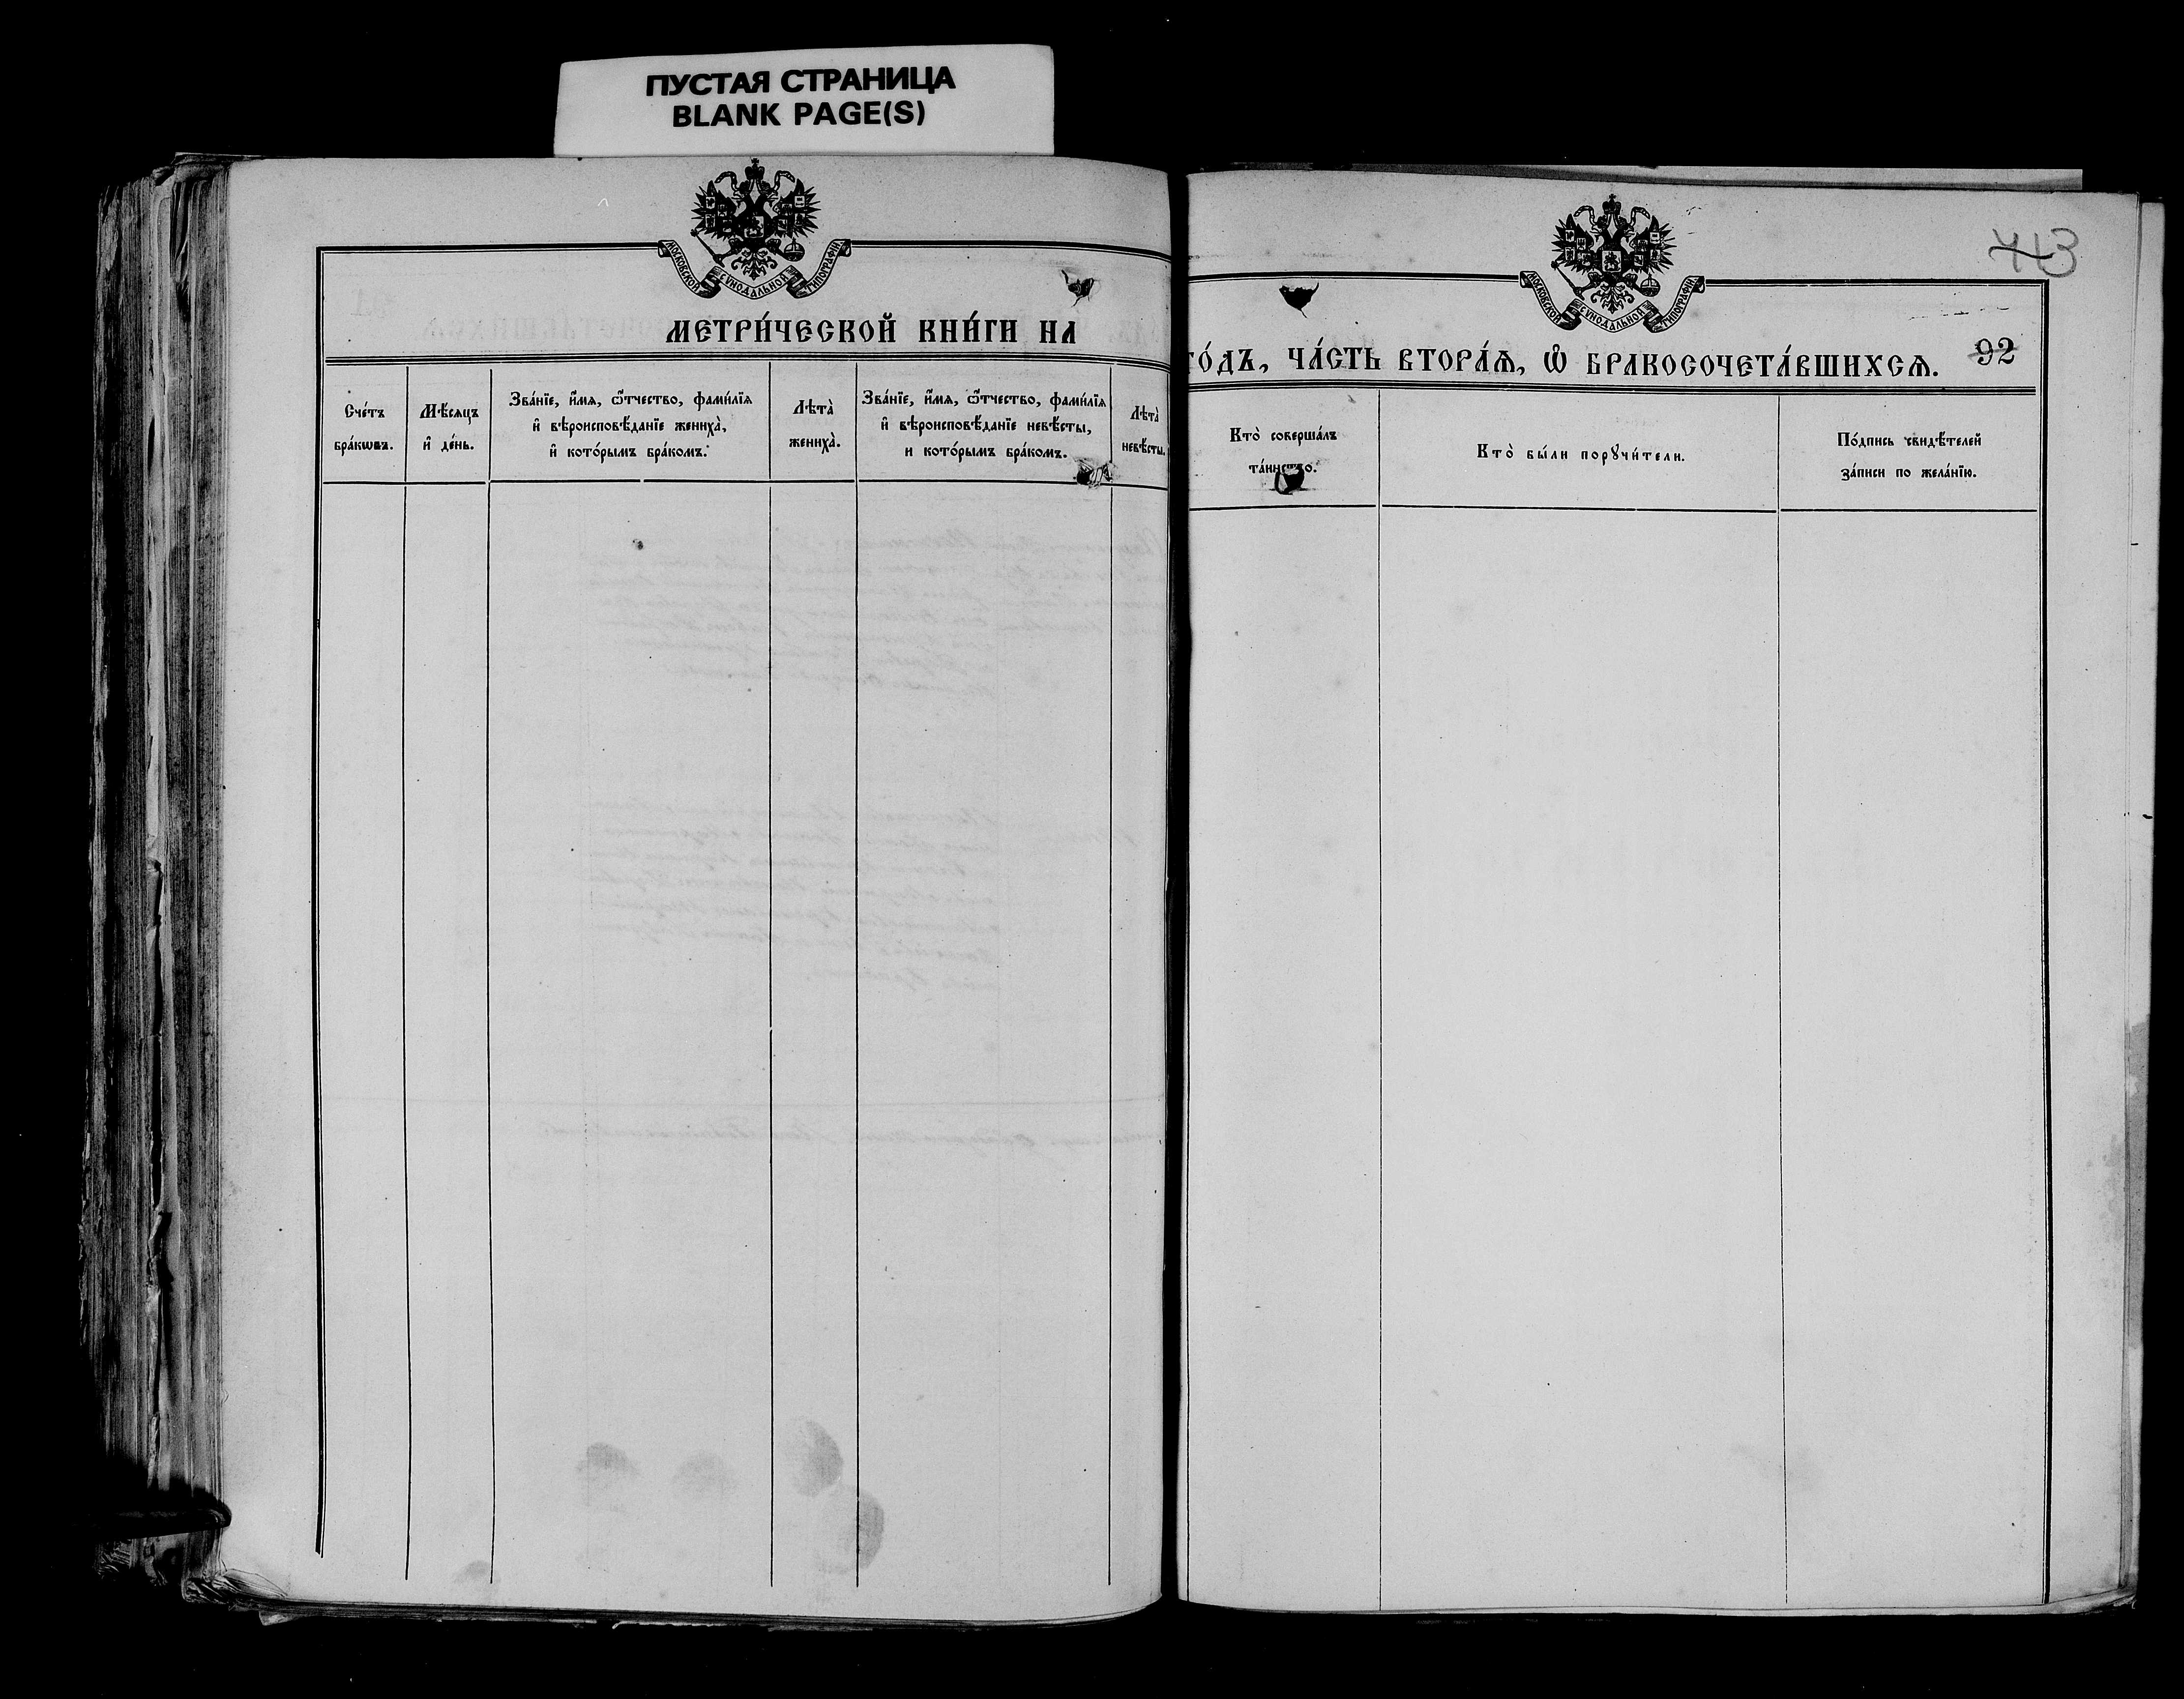 ПУСТАЯ СТРАНИЦА
BLANK PAGE(S)
МОСКОВСКОЙ СѴНОДАЛЬНОЙ ТИПОГРАФІИ
МЕТРИ́ЧЕСКОЙ КНИ́ГИ НА
Сче́тъ
бра́кѡвъ.
Мѣ́сяцъ
и҆ де́нь.
Зва́нїе, и҆́мя, ѻ҆́тчество, фами́лїя
и҆ вѣроисповѣ́данїе жениха̀,
и҆ кото́рымъ бра́комъ.
Лѣта̀
жениха̀.
Зва́нїе, и҆́мя, ѻ҆́тчество, фами́лїя
и҆ вѣроисповѣ́данїе невѣ́сты,
и кото́рымъ бра́комъ.
Лѣта̀
невѣ́сты.
443
МОСКОВСКОЙ СѴНОДАЛЬНОЙ ТИПОГРАФІИ
ГО́ДЪ, ЧА́СТЬ ВТОРА́Ѧ, Ѡ҆ БРАКОСОЧЕТА́ВШИХСѦ.
92
Кто̀ соверша́лъ
та́инство.
Кто̀ бы́ли порꙋчи́тели.
По́дпись свидѣ́телей
за́писи по жела́нїю.